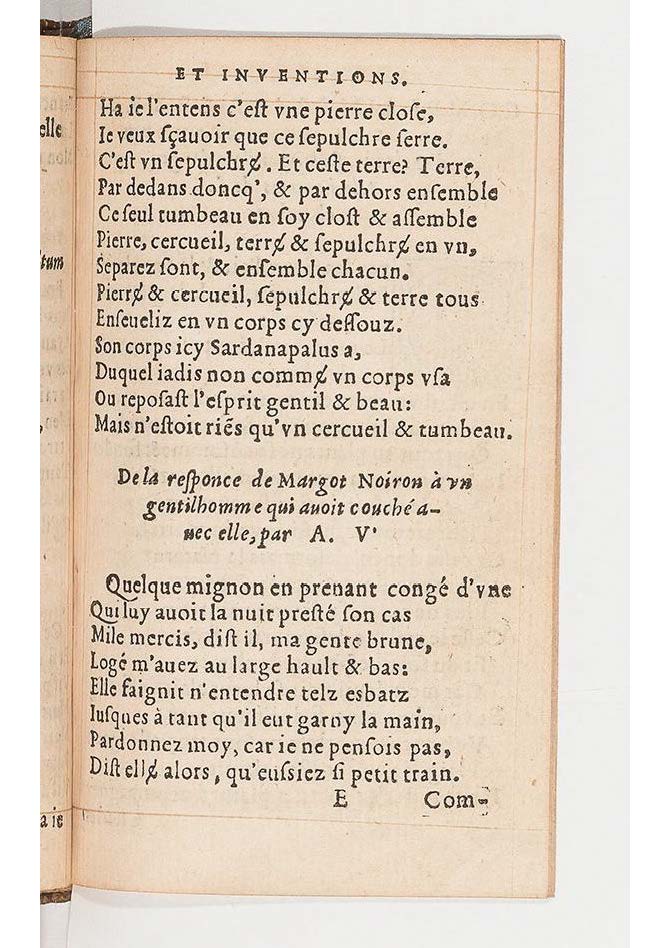 ET INVENTIONS.
Ha ie l'entens c'eſt vne pierre cloſe,
Ie veux ſçauoir que ce ſepulchre ſerre.
C'eſt vn ſepulchrɇ. Et ceſte terre? Terre,
Par dedans doncq', & par dehors enſemble
Ce ſeul tumbeau en ſoy cloſt & aſſemble
Pierre, cercueil, terrɇ & ſepulchrɇ en vn,
Separez ſont, & enſemble chacun.
Pierrɇ & cercueil, ſepulchrɇ & terre tous
Enſeueliz en vn corps cy deſſouz.
Son corps icy Sardanapalus a,
Duquel iadis non commɇ vn corps vſa
Ou repoſaſt l'eſprit gentil & beau:
Mais n'eſtoit riẽs qu'vn cercueil & tumbeau.
De la reſponce de Margot Noiron à vn
gentilhomme qui auoit couché a-
uec elle, par A. V.
Quelque mignon en prenant congé d'vne
Qui luy auoit la nuit preſté ſon cas
Mile mercis, diſt il, ma gente brune,
Logé m'auez au large hault & bas:
Elle faignit n'entendre telz esbatz
Iuſques à tant qu'il eut garny la main,
Pardonnez moy, car ie ne penſois pas,
Diſt ellɇ alors, qu'euſsiez ſi petit train.
E Com-
elle
tum
a ie